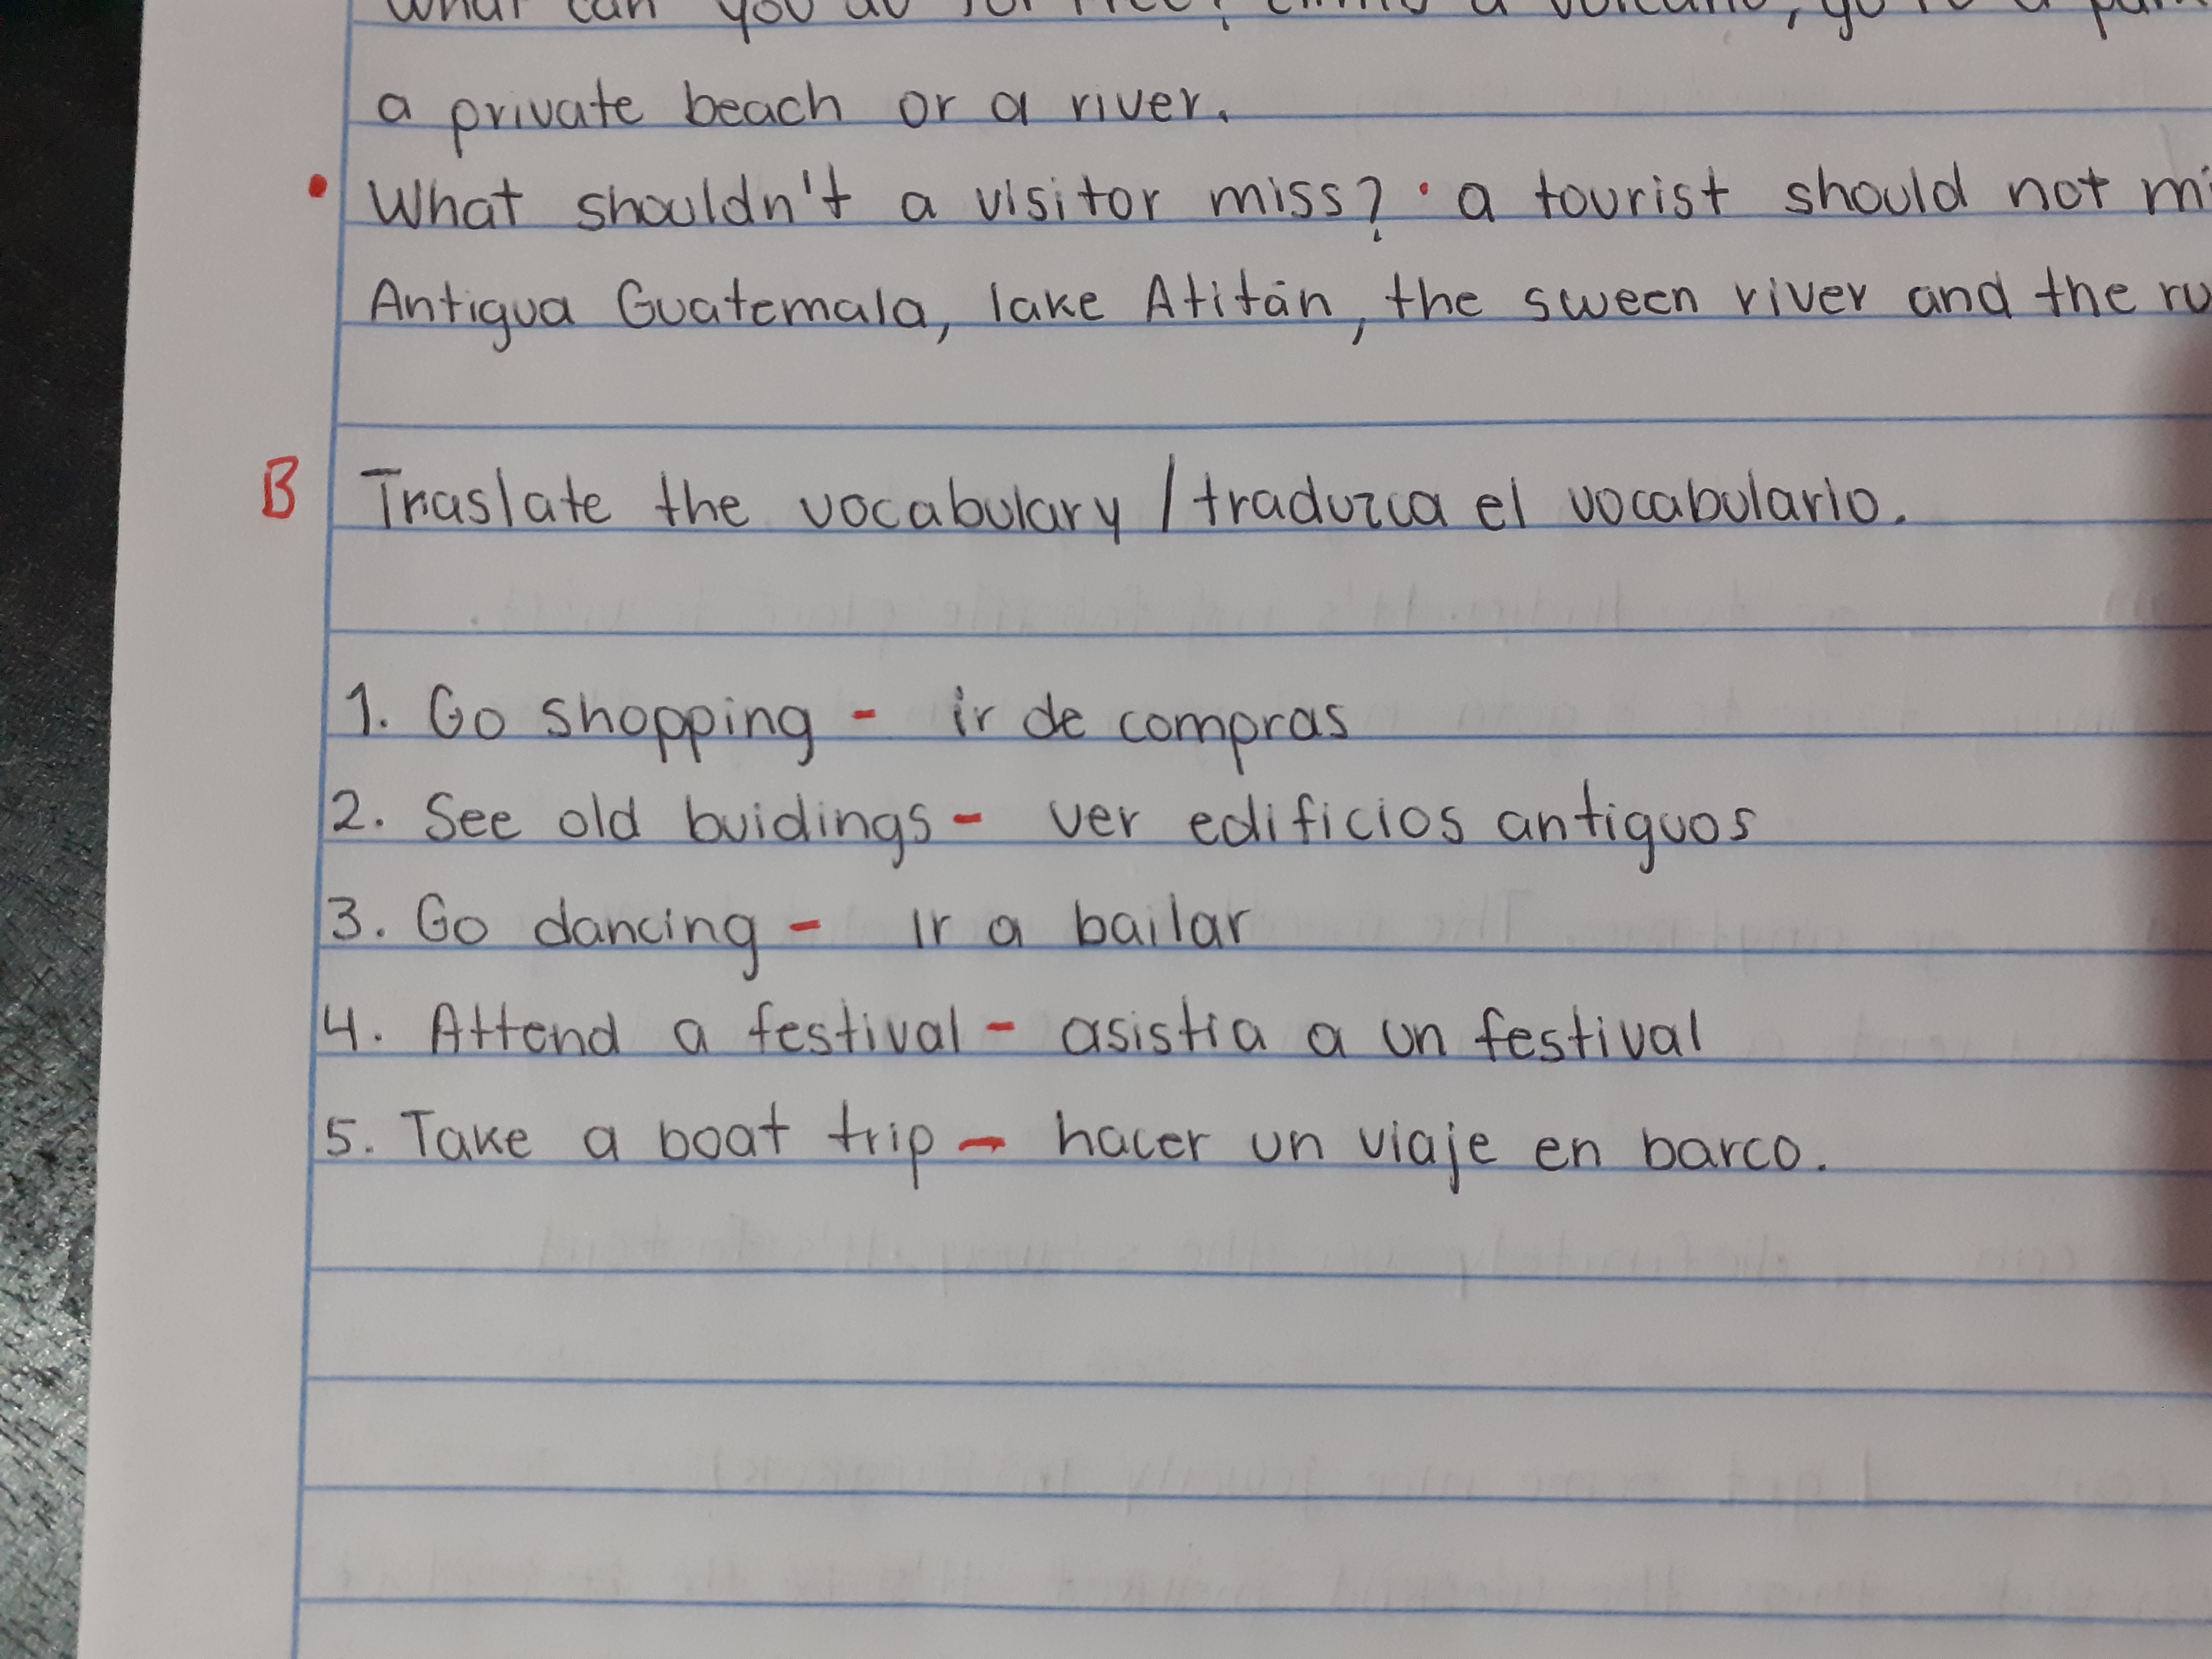 What can you do for free? climb a volcano, go to a
a private beach or a river.
• What shouldn't a visitor miss? • a tourist should not
Antigua Guatemala, lake Atitán, the sween river and the
B Traslate the vocabulary / traduzca el vocabulario.
1. Go shopping - ir de compras
2. See old buidings - ver edificios antiguos
3. Go dancing - Ir a bailar
4. Attend a festival - asistia a un festival
5. Take a boat trip - hacer un viaje en barco.